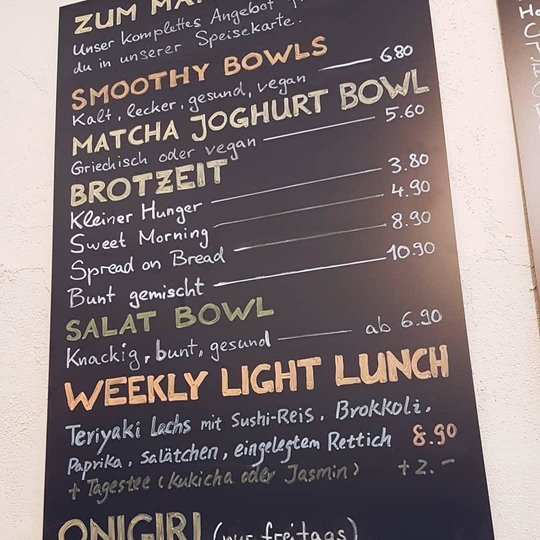 ZUM
Unser komplettes Angebot
du in unserer Speisekarte.
SMOOTHY BOWLS
Kalt, lecker, gesund, vegan 6.80
MATCHA JOGHURT BOWL
Griechisch oder vegan 5.60
BROTZEIT
Kleiner Hunger 3.80
Sweet Morning 4.90
Spread on Bread 8.90
Bunt gemischt 10.90
SALAT BOWL
Knackig, bunt, gesund ab 6.90
WEEKLY LIGHT LUNCH
Teriyaki Lachs mit Sushi-Reis, Brokkoli,
Paprika, Salätchen, eingelegtem Rettich 8.90
+ Tagestee (Kukicha oder Jasmin) + 2.-
ONIGIRI (nur freitags)